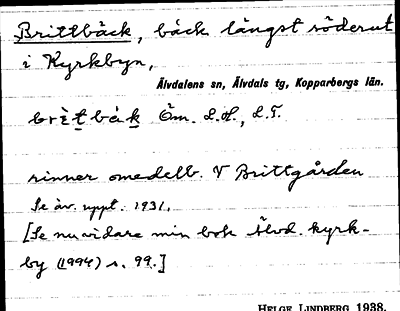 Brittbäck, bäck längst söderut
i Kyrkbyn,
Älvdalens sn, Älvdals tg, Kopparbergs län.
Öm. L.ol., L.T.
rinner omedelb. V Brittgården
Se äv. uppt. 1931.
[Se nu vidare min bok Älvd. kyrk-
by (1994) s. 99.]
HELGE LINDBERG 1938.